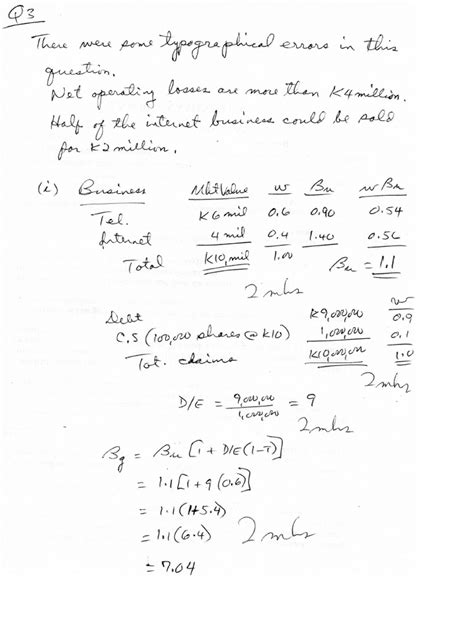 Q3
There were some typographical errors in this
question.
Net operating losses are more than K4million.
Half of the internet business could be sold
for K2million.
(i) Business Mkt Value w Bu wBu
Tel. K6 mil 0.6 0.90 0.54
Internet 4 mil 0.4 1.40 0.56
Total K10,mil 1.00 Bu = 1.1
2 mks
w
Debt K9,000,000 0.9
C.S (100,000 shares @ K10) 1,000,000 0.1
Tot. claims K10,000,000 1.0
2 mks
D/E = 9,000,000 / 1,000,000 = 9
2 mks
Bg = Bu [1 + D/E(1-T)]
= 1.1 [1 + 9 (0.6)]
= 1.1 (1+5.4)
= 1.1 (6.4) 2 mks
= 7.04